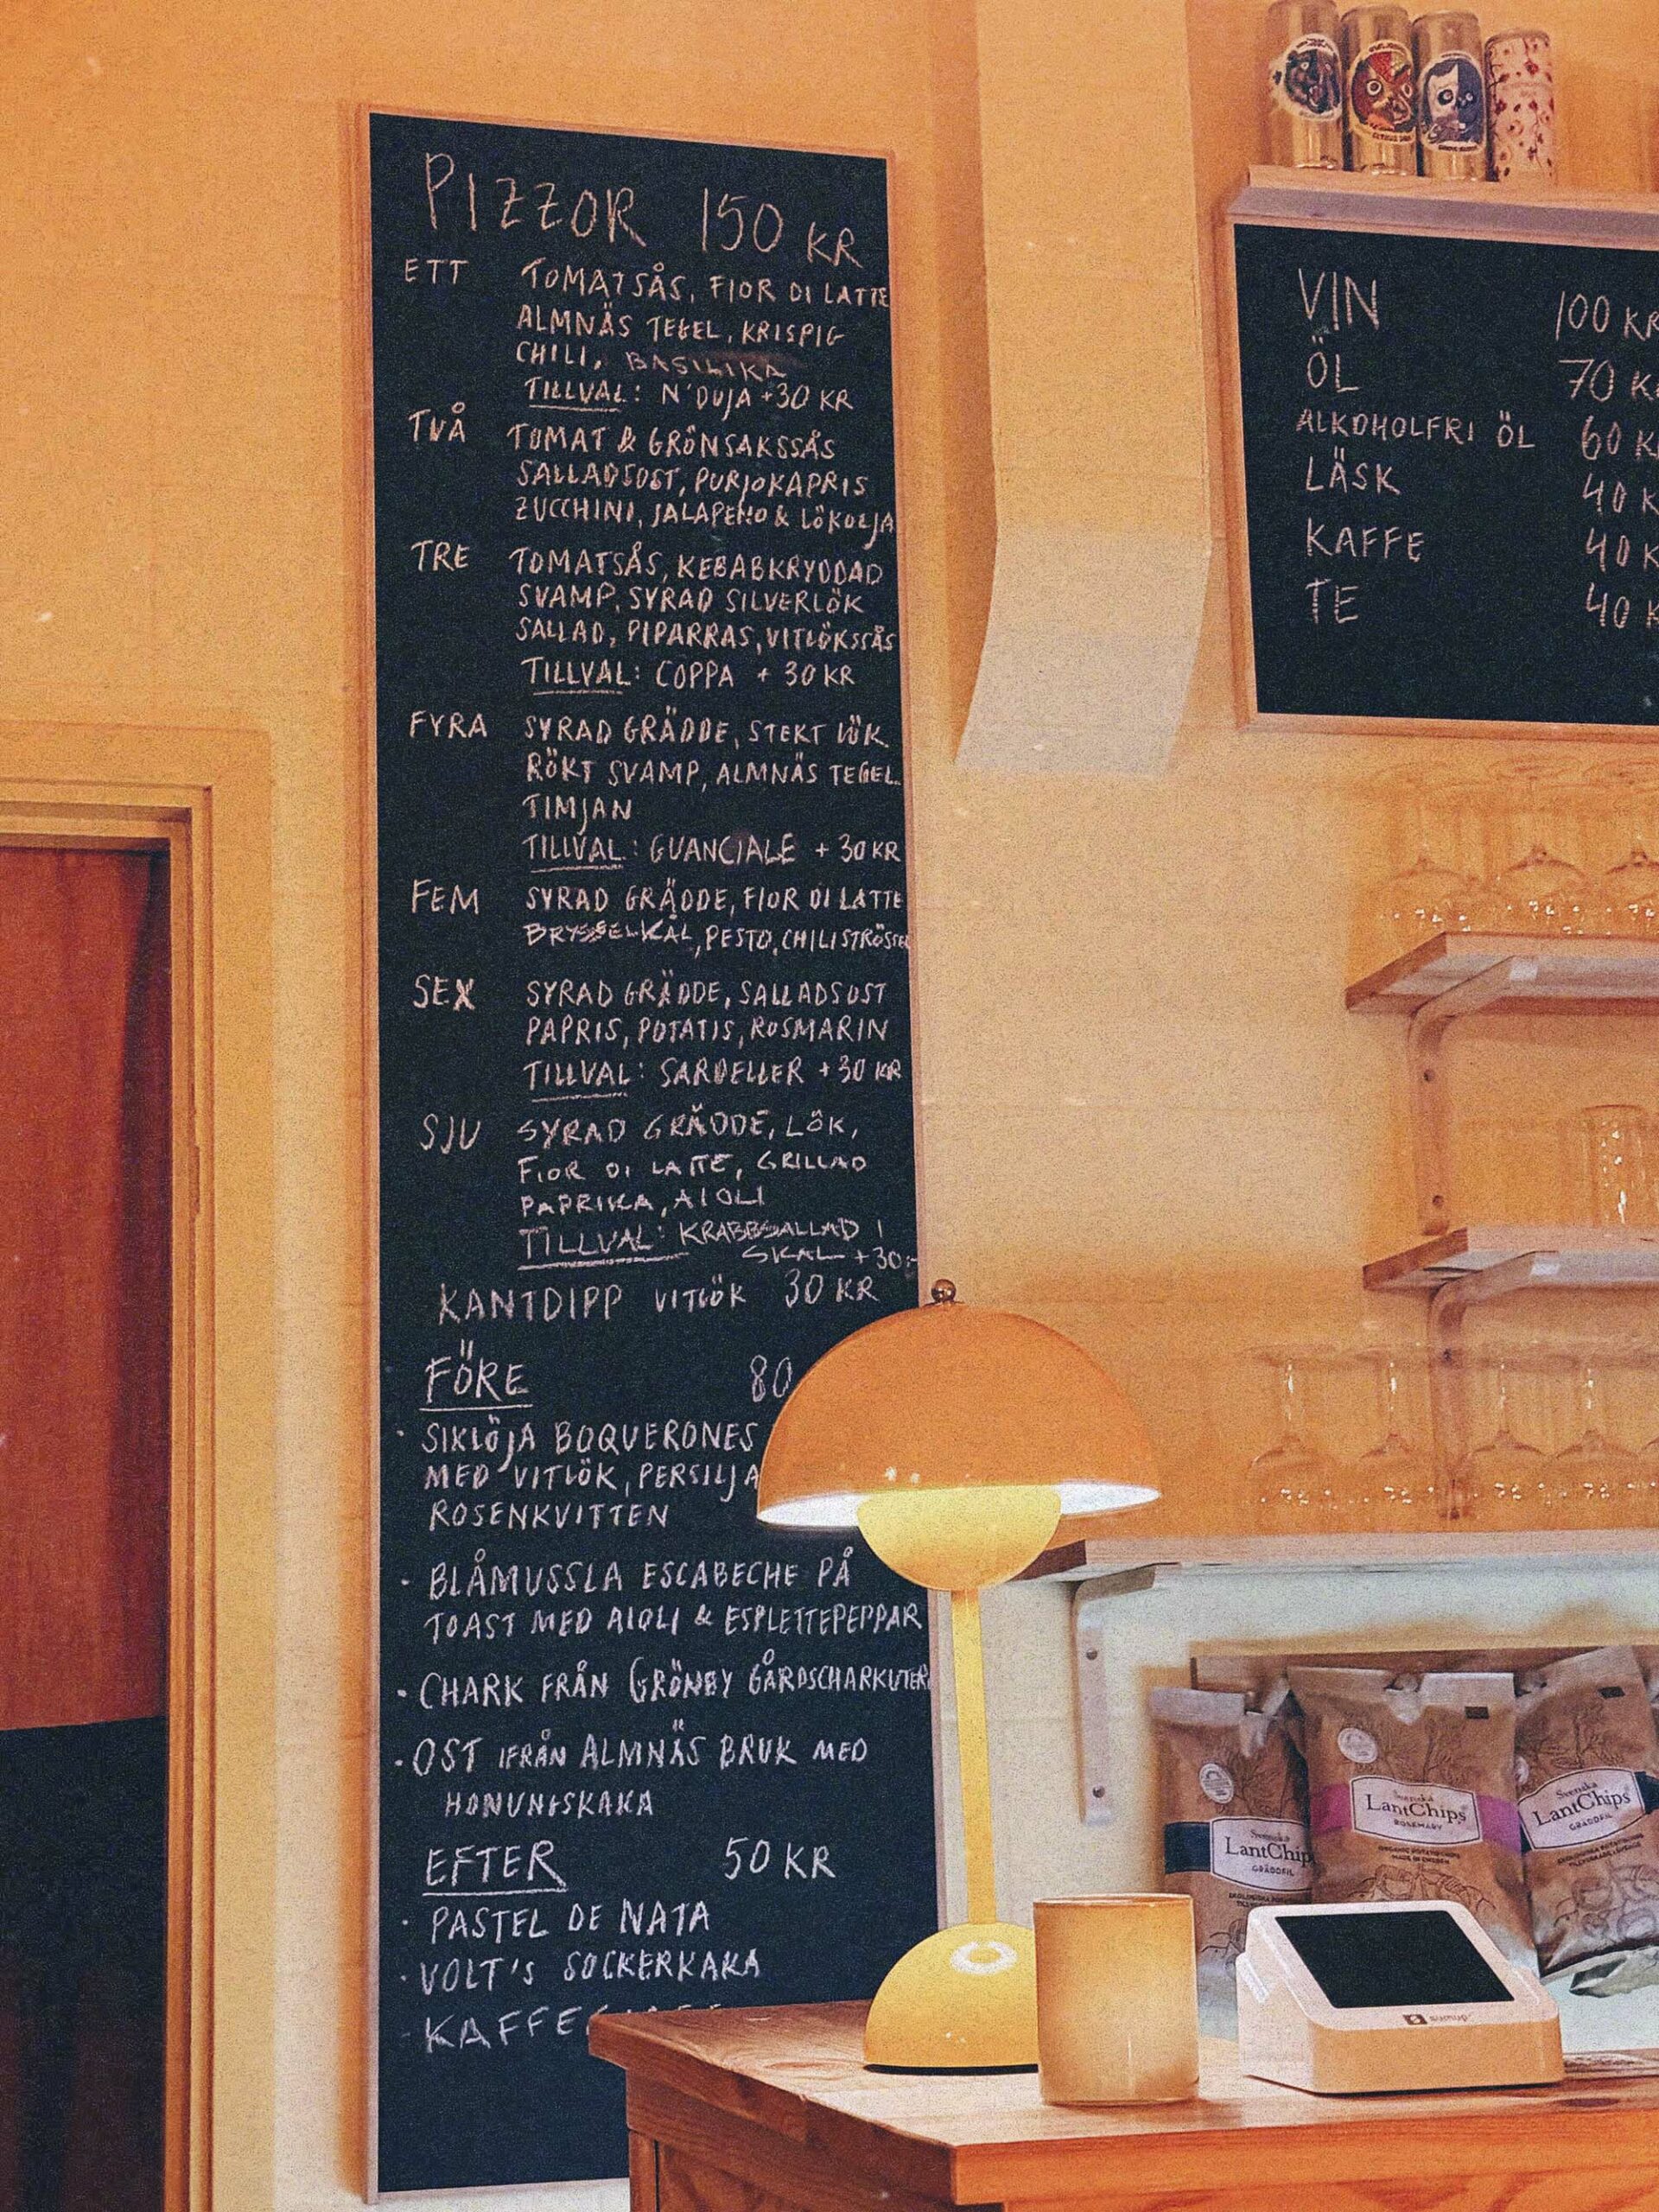 PIZZOR 150 KR
ETT TOMATSÅS, FIOR DI LATTE
ALMNÄS TEGEL, KRISPIG
CHILI, BASILIKA
TILLVAL: N'DUJA +30 KR
TVÅ TOMAT & GRÖNSAKSSÅS
SALLADSOST, PURJOKAPRIS
ZUCCHINI, JALAPEÑO & LÖKOLJA
TRE TOMATSÅS, KEBABKRYDDAD
SVAMP, SYRAD SILVERLÖK
SALLAD, PIPARRAS, VITLÖKSSÅS
TILLVAL: COPPA + 30 KR
FYRA SYRAD GRÄDDE, STEKT LÖK
RÖKT SVAMP, ALMNÄS TEGEL
TIMJAN
TILLVAL: GUANCIALE + 30 KR
FEM SYRAD GRÄDDE, FIOR DI LATTE
BRYSSELKÅL, PESTO, CHILISTRÖSSEL
SEX SYRAD GRÄDDE, SALLADSOST
PAPRIS, POTATIS, ROSMARIN
TILLVAL: SARDELLER + 30 KR
SJU SYRAD GRÄDDE, LÖK,
FIOR DI LATTE, GRILLAD
PAPRIKA, AIOLI
TILLVAL: KRABBSALLAD I
SKAL +30:-
KANTDIPP VITLÖK 30 KR
FÖRE 80
· SIKLÖJA BOQUERONES
MED VITLÖK, PERSILJA
ROSENKVITTEN
· BLÅMUSSLA ESCABECHE PÅ
TOAST MED AIOLI & ESPLETTEPEPPAR
· CHARK FRÅN GRÖNBY GÅRDSCHARKUTERI
· OST IFRÅN ALMNÄS BRUK MED
HONUNGSKAKA
EFTER 50 KR
· PASTEL DE NATA
· VOLT'S SOCKERKAKA
· KAFFE
VIN 100 KR
ÖL 70 K
ALKOHOLFRI ÖL 60 K
LÄSK 40 K
KAFFE 40 K
TE 40 K
Svenska
LantChip
GRÄDDFIL
Svenska
LantChips
ROSEMARY
ORGANIC POTATO CHIPS
MADE IN SWEDEN
Svenska
LantChips
GRÄDDFIL
sumup